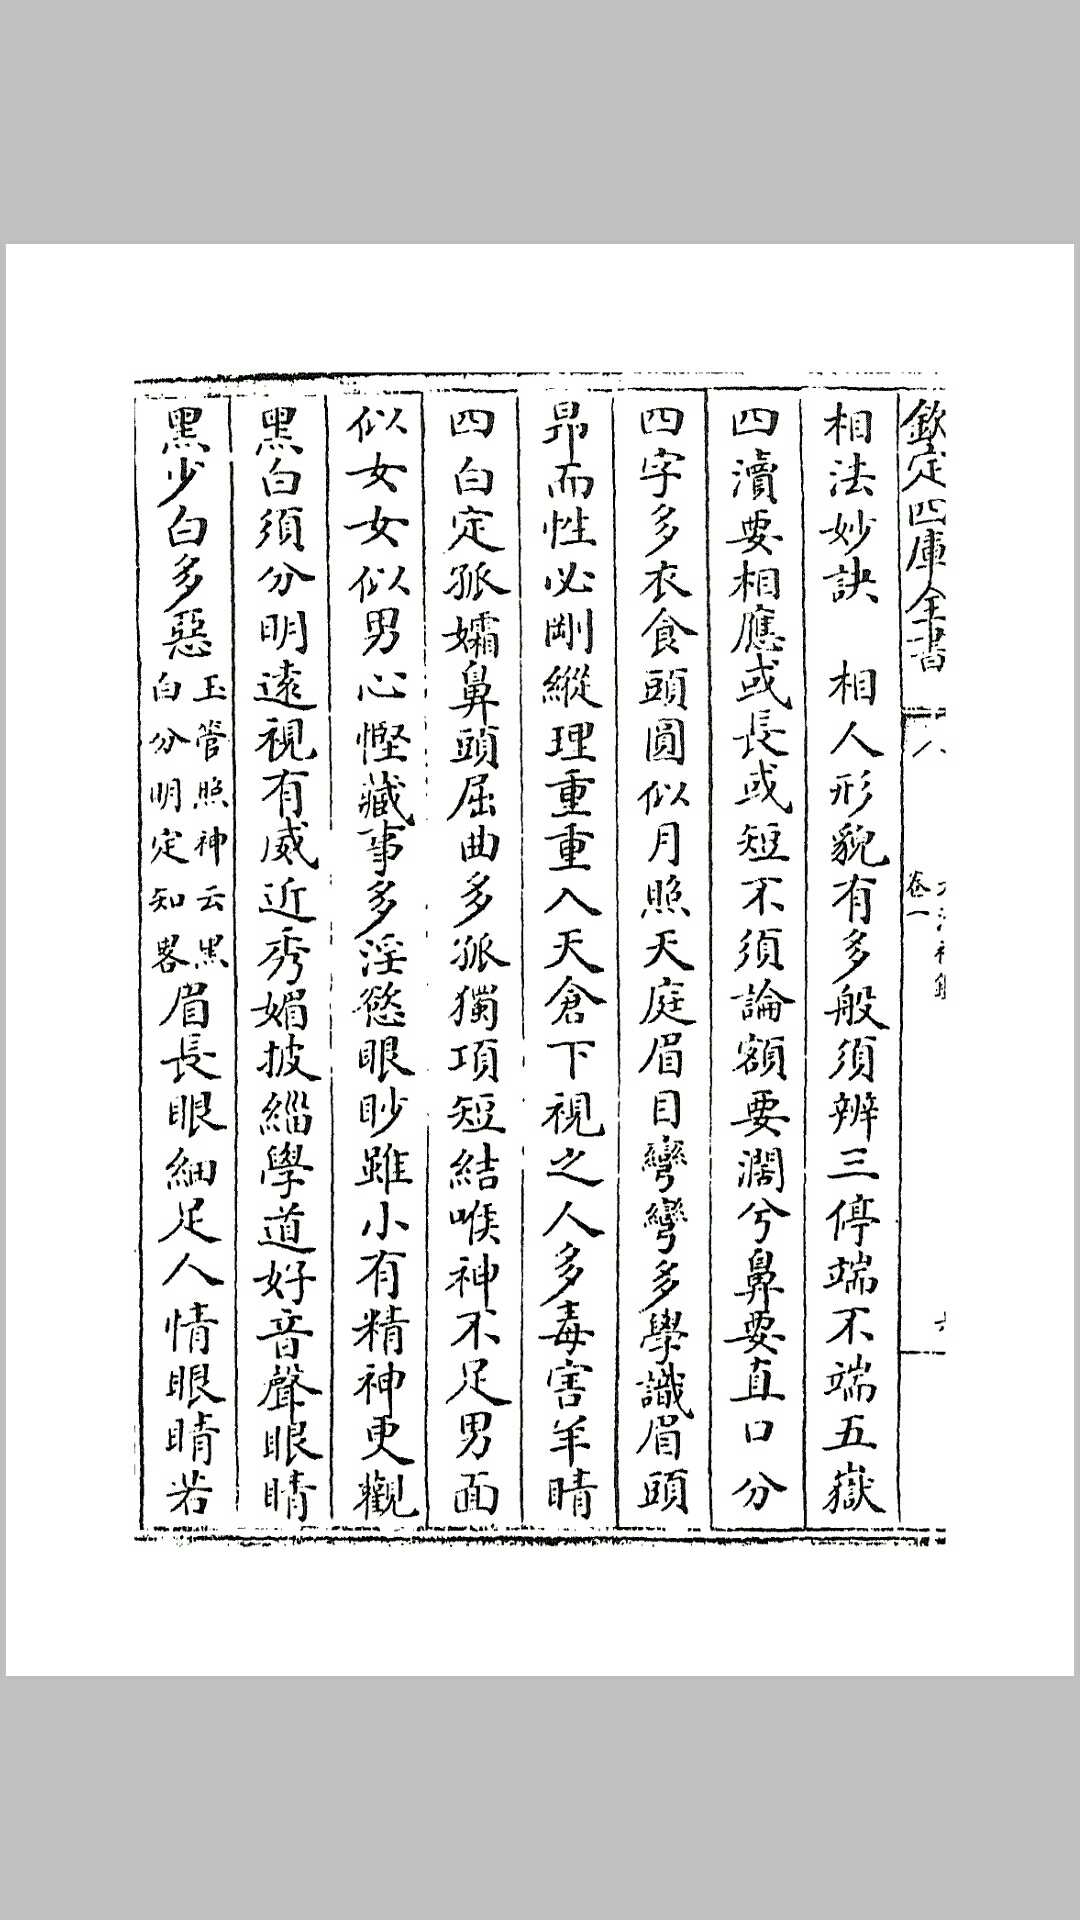 欽定四庫全書
卷一
相法妙訣　相人形貌有多般須辨三停端不端五嶽
四瀆要相應或長或短不須論額要濶兮鼻要直口分
四字多衣食頭圓似月照天庭眉目彎彎多學識眉頭
昻而性必剛縱理重重入天倉下視之人多毒害羊睛
四白定孤孀鼻頭屈曲多孤獨項短結喉神不足男面
似女女似男心慳藏事多淫慾眼眇雖小有精神更觀
黑白須分明逺視有威近秀媚披緇學道好音聲眼睛
黑少白多惡
玉管照神云黑
白分明定知畧
眉長眼細足人情眼睛若